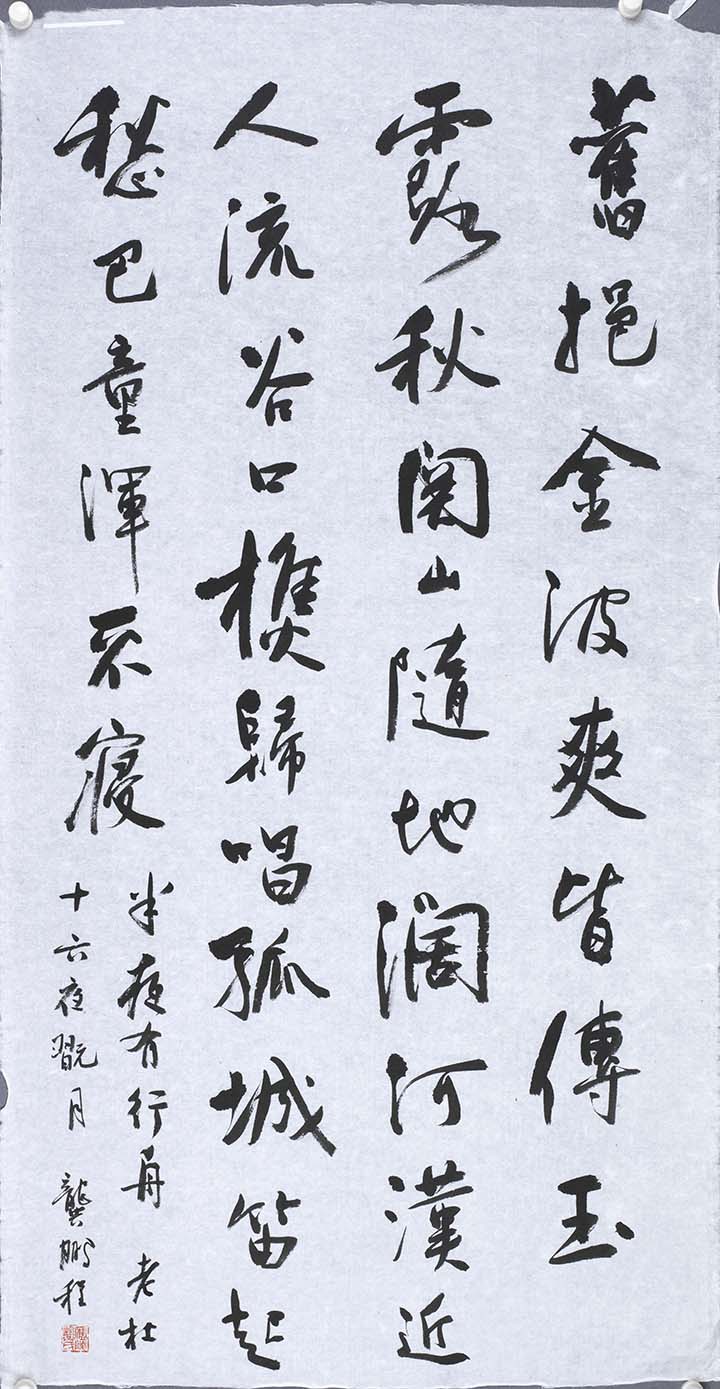 舊挹金波爽皆傳玉
露秋関山隨地濶河漢近
人流谷口樵歸唱孤城笛起
愁巴童渾不寢
半夜有行舟 老杜
十六夜翫月 龔鵬程